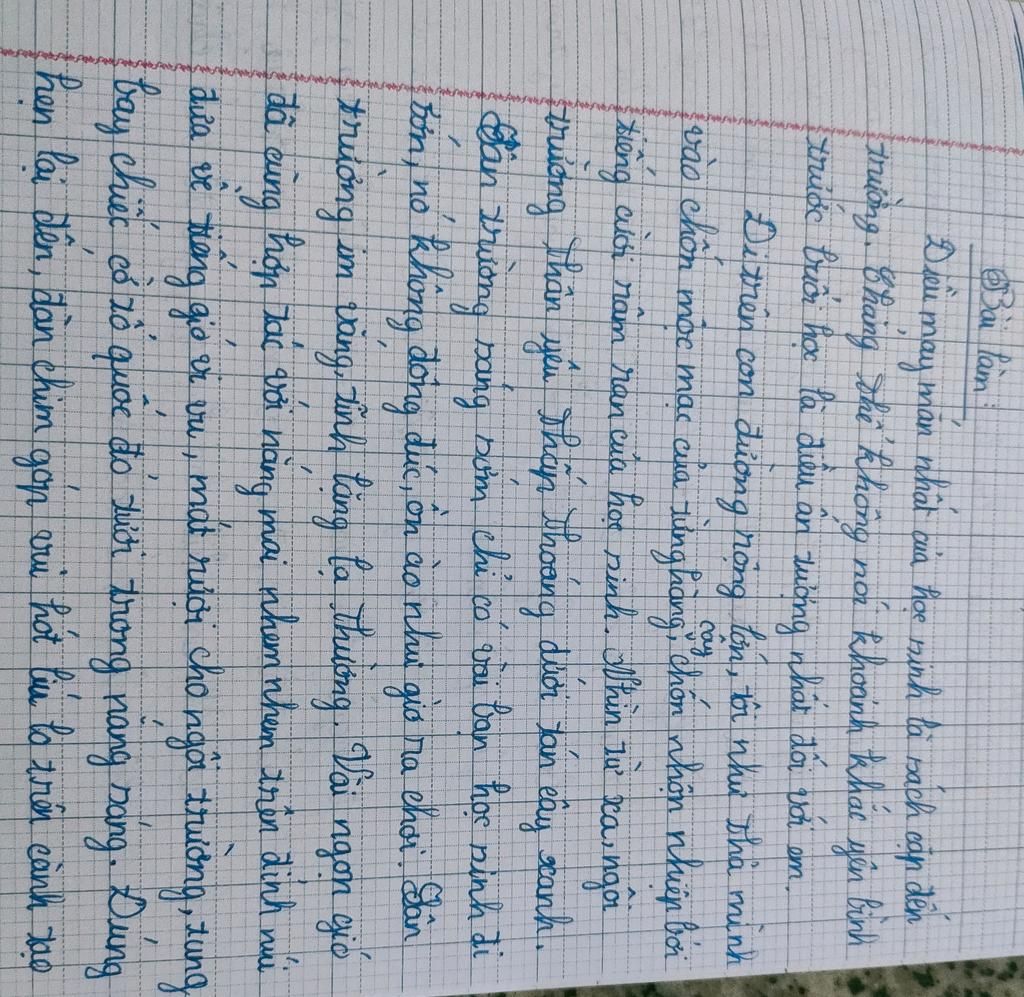 Bài làm:
Điều may mắn nhất của học sinh là xách cặp đến
trường. Chẳng thể không nói khoảnh khắc yên bình
trước buổi học là điều ấn tượng nhất đối với em.
Đi trên con đường rộng lớn, tôi như thả mình
vào chốn mộc mạc của từng hàng cây, chốn nhộn nhịp bởi
tiếng cười râm ran của học sinh. Nhìn từ xa, ngôi
trường thân yêu thấp thoáng dưới tán cây xanh.
Sân trường sáng sớm chỉ có vài bạn học sinh đi
tới, nó không đông đúc, ồn ào như giờ ra chơi. Sân
trường im vắng, tĩnh lặng lạ thường. Vài ngọn gió
đã cùng hợp tác với nắng mai nhem nhum trên đỉnh núi
đưa về tiếng gió vi vu, mát rượi cho ngôi trường, tung
bay chiếc cờ tổ quốc đỏ tươi trong nắng sáng. Đúng
hẹn lại đến, đàn chim góp vui hót líu lo trên cành tạo